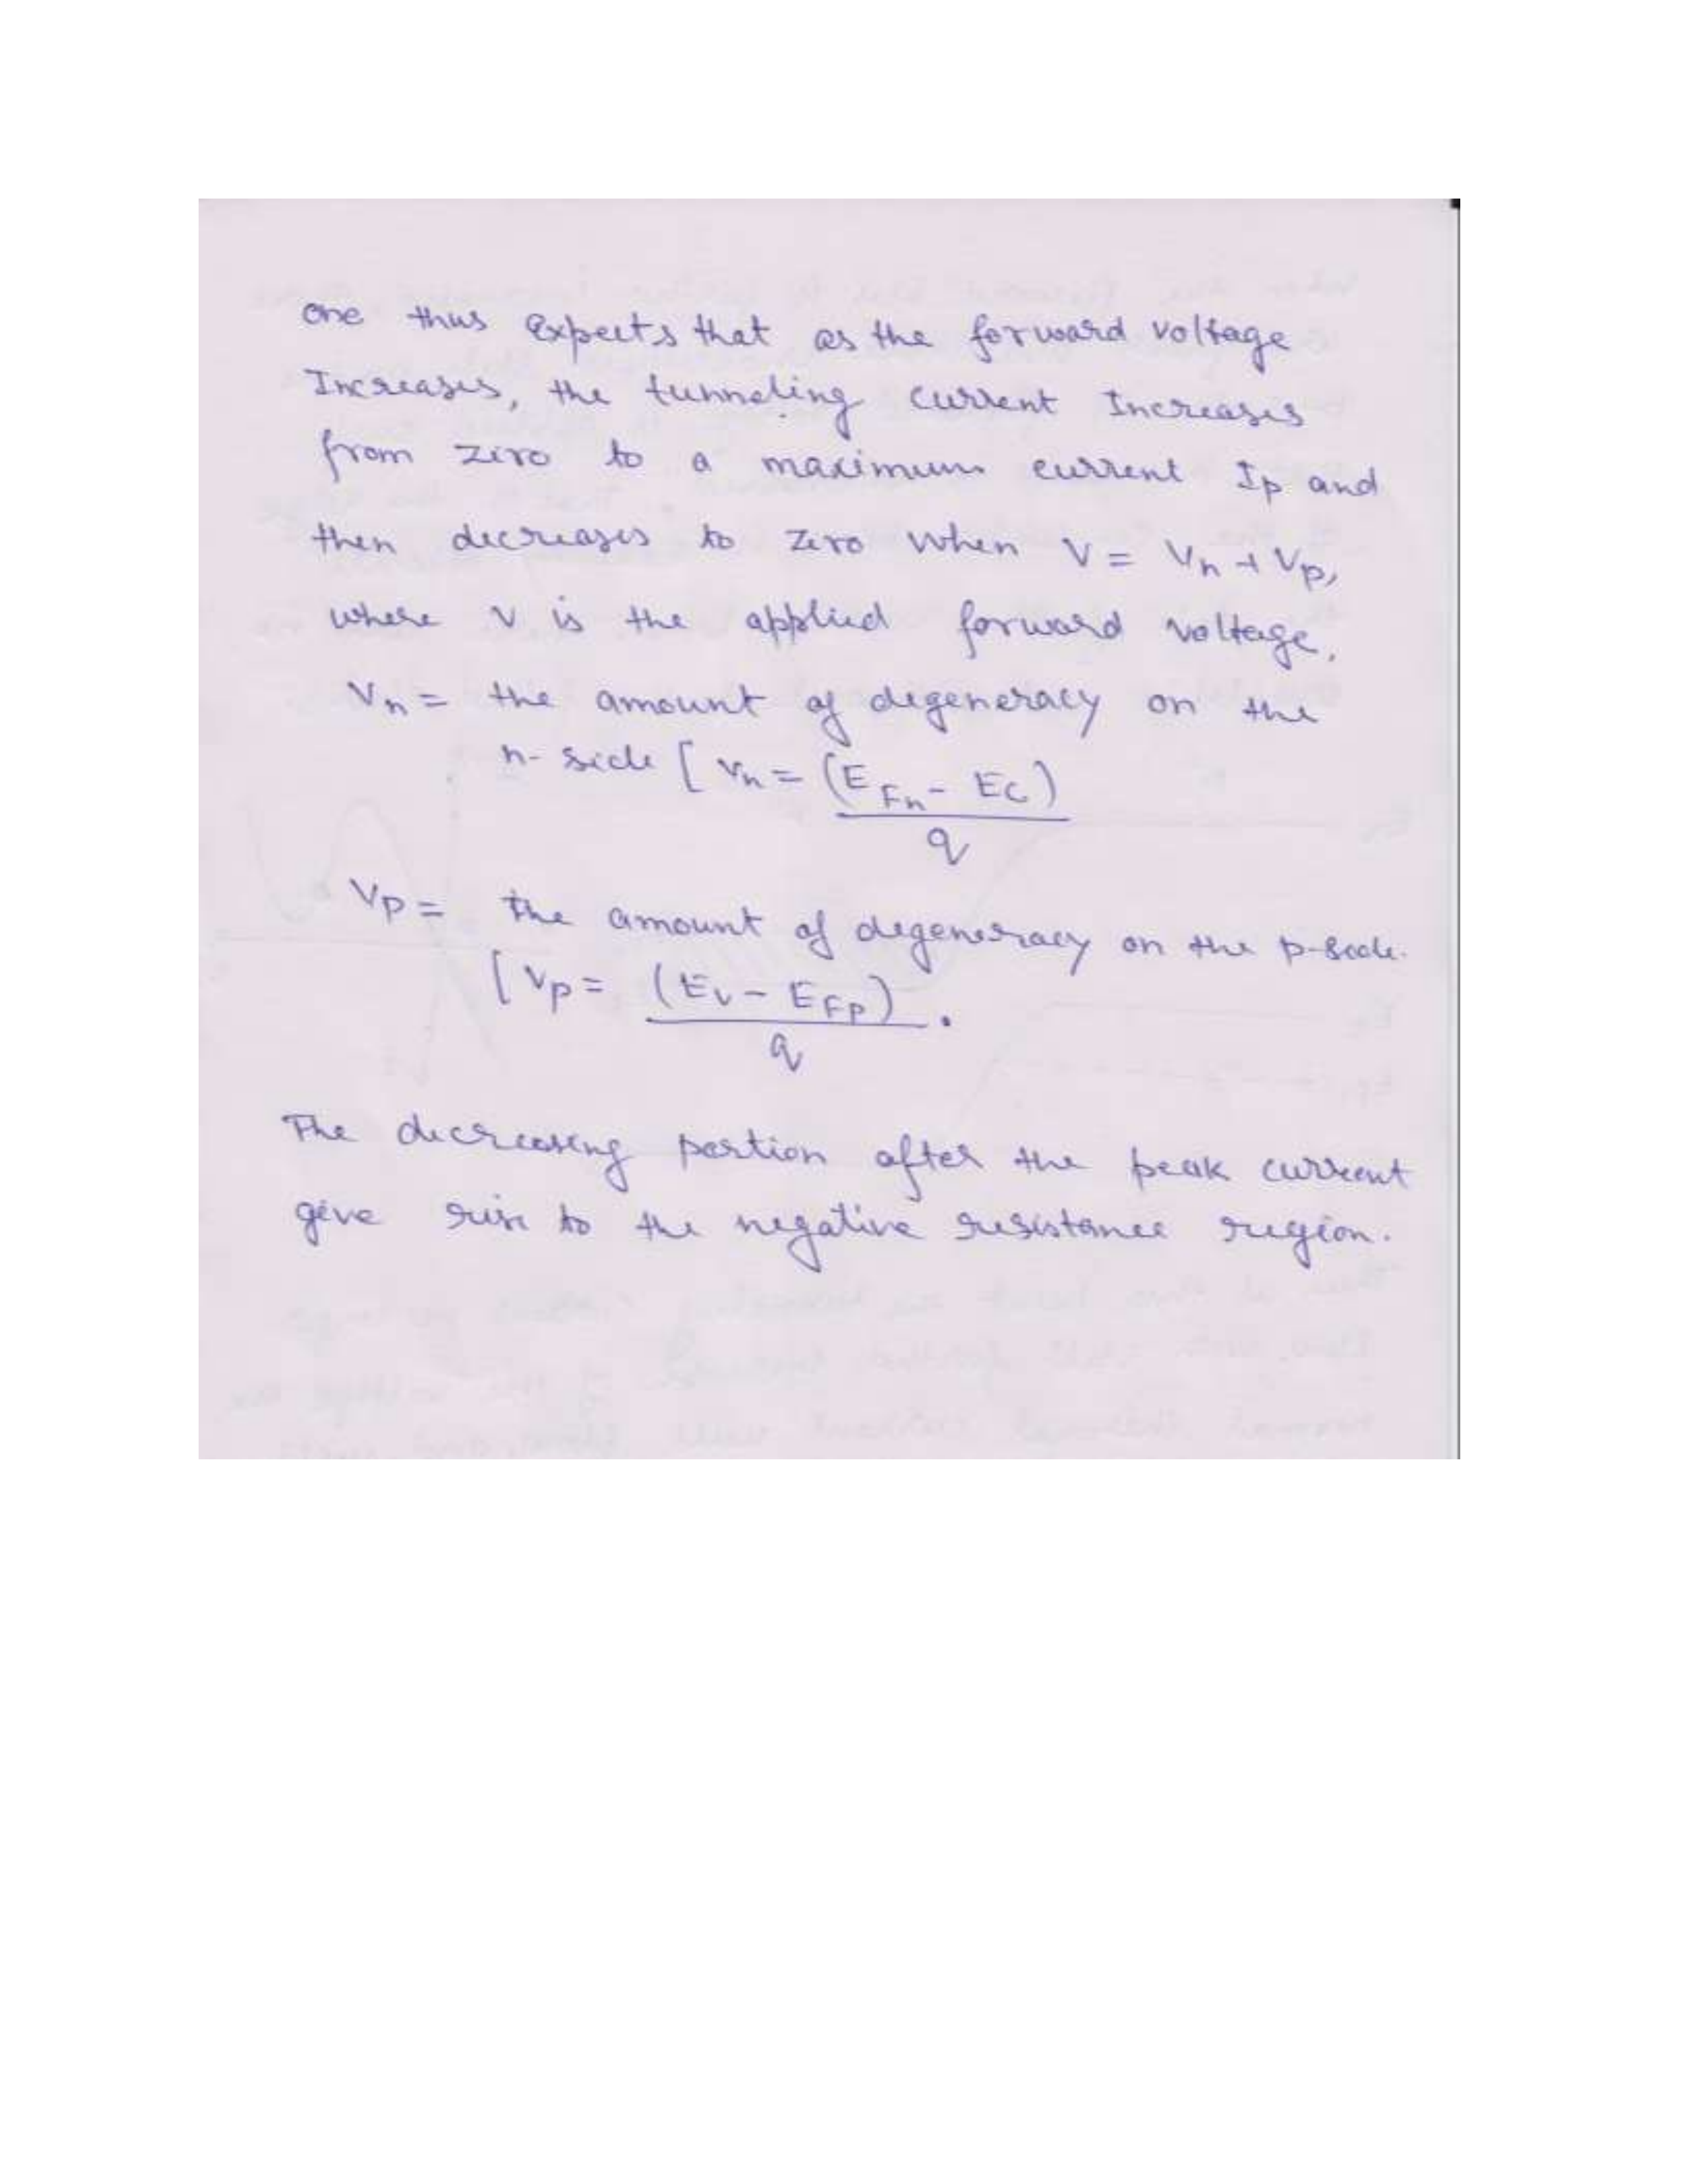 one thus expects that as the forward voltage
Increases, the tunneling current Increases
from zero to a maximum current Ip and
then decreases to zero when V = Vn + Vp,
where V is the applied forward voltage,
Vn = the amount of degeneracy on the
n-side [ Vn = (EFn - EC)
q
Vp = The amount of degeneracy on the p-side.
[ Vp = (Ev - EFp) .
q
The decreasing portion after the peak current
give rise to the negative resistance region.